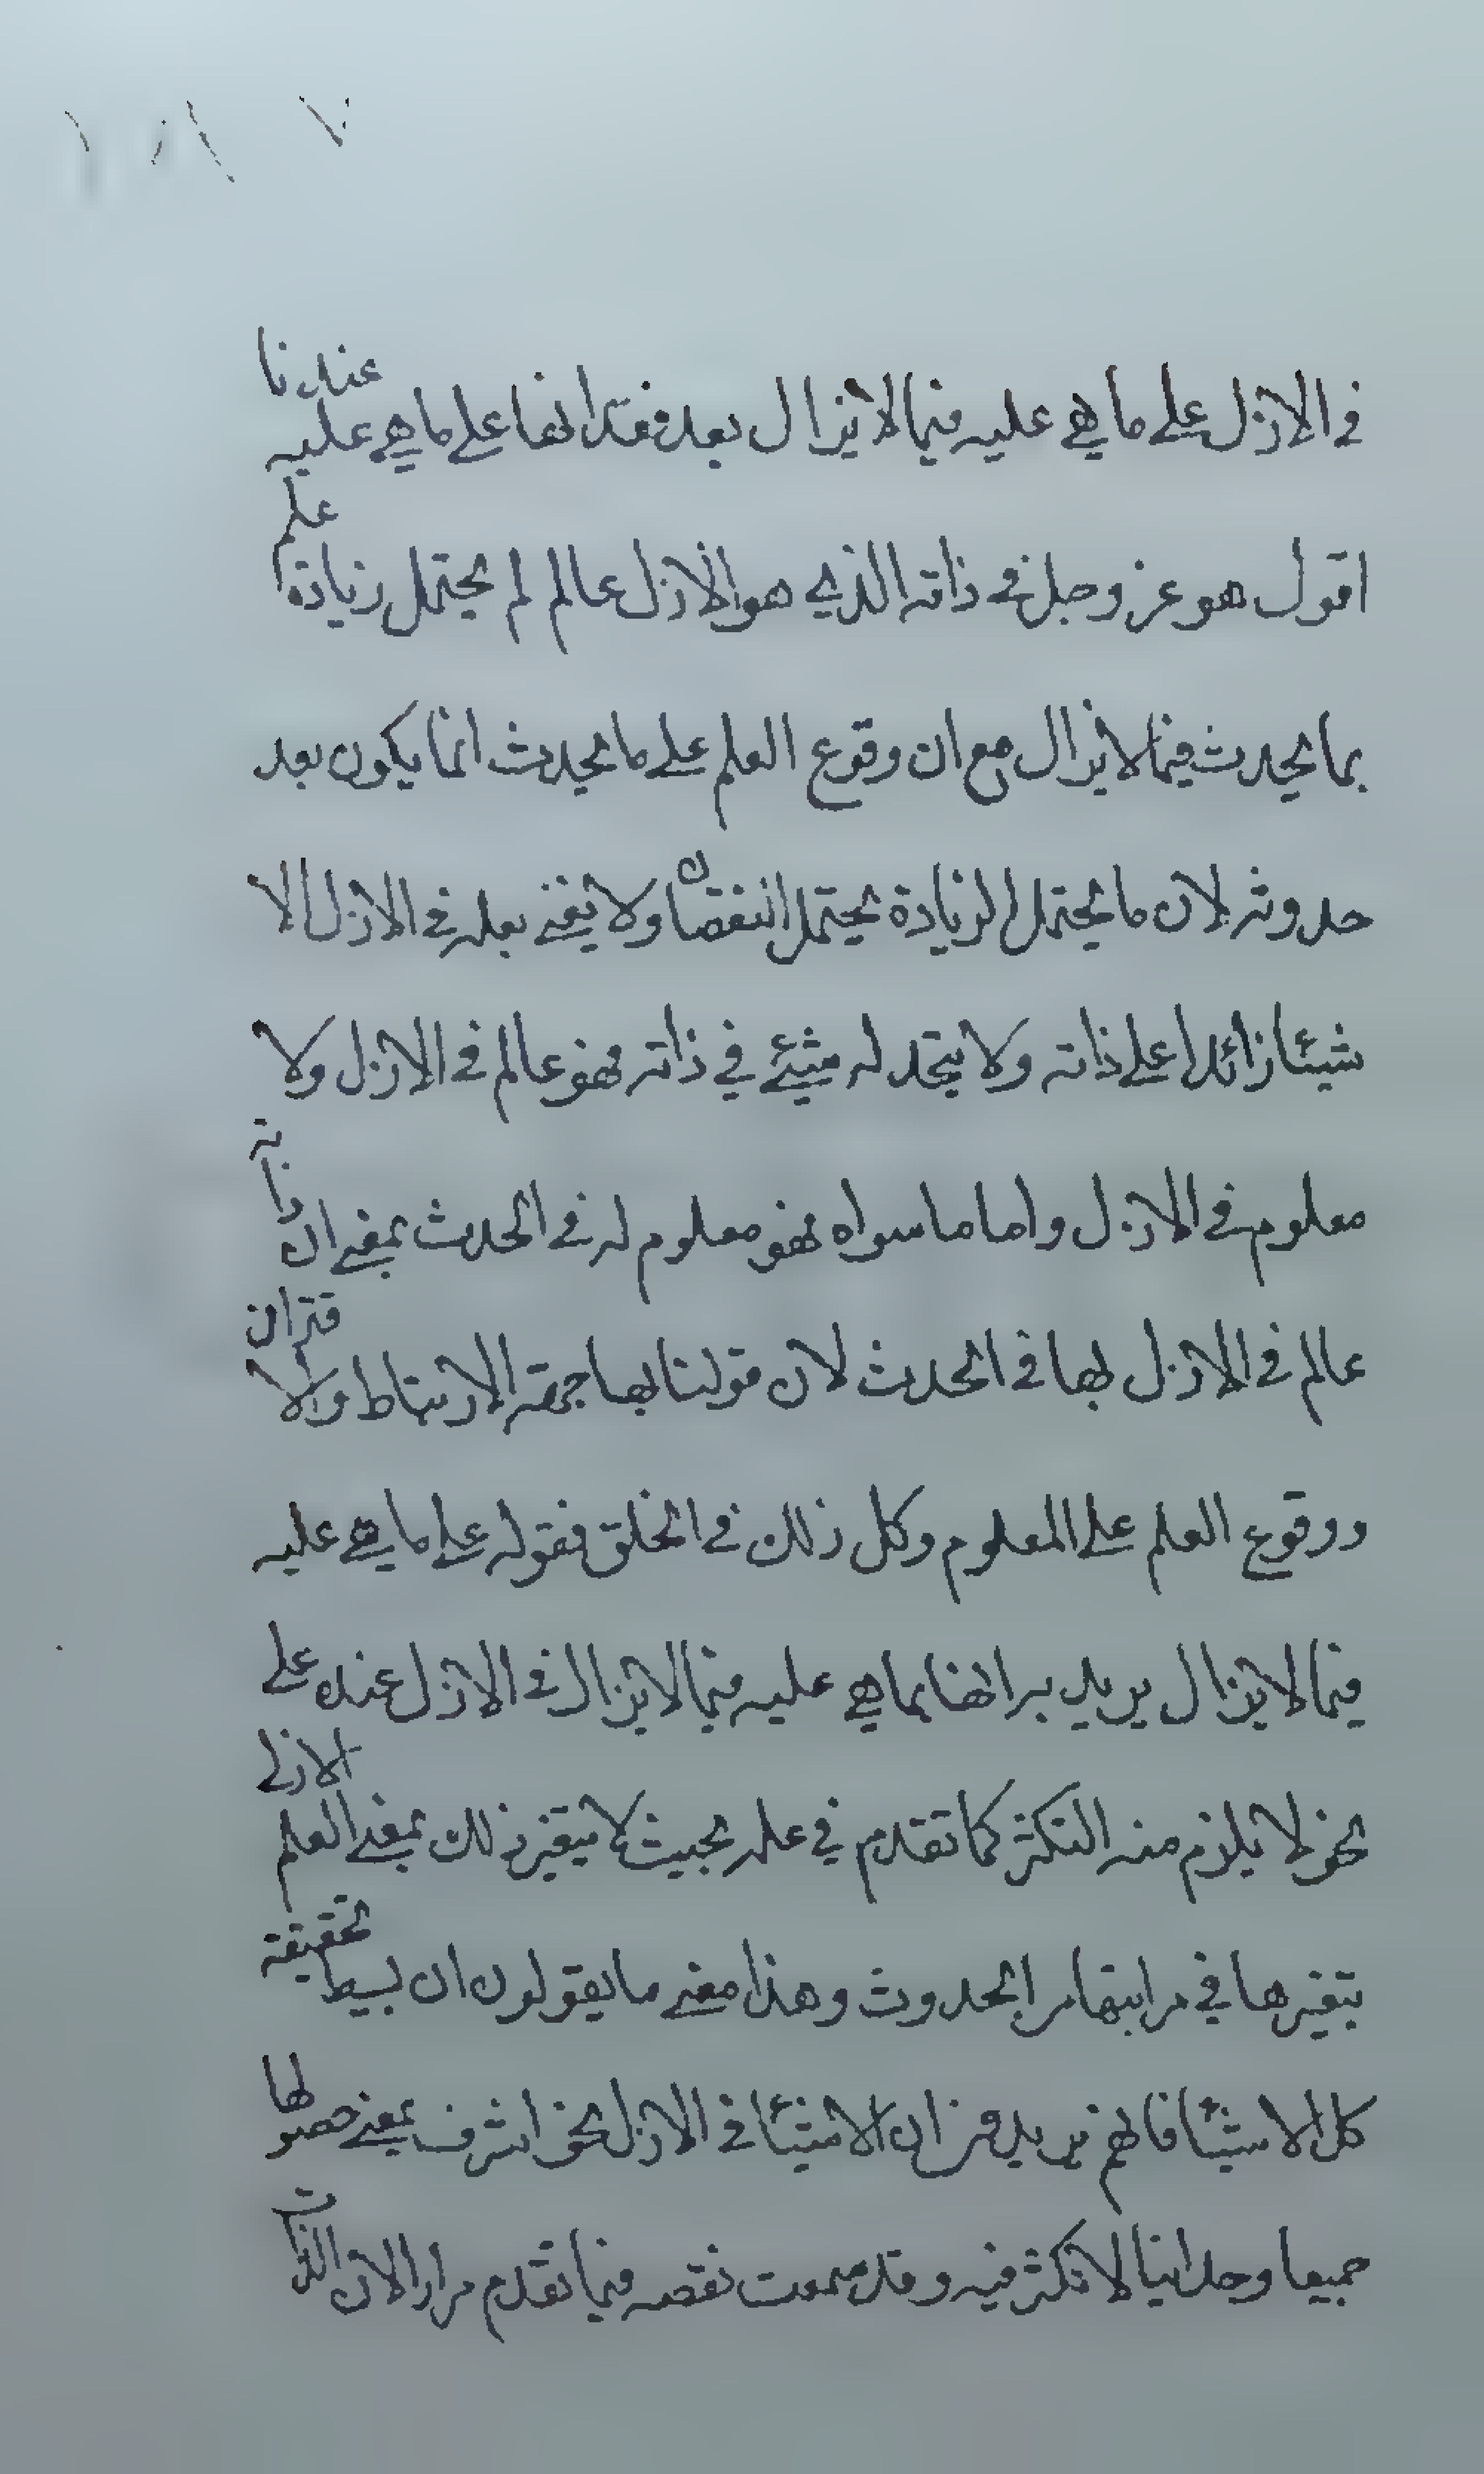 في الازل على ما هي عليه فيما لا يزال بعد فقدانها على ما هي عليه عندنا
اقول هو عز وجل في ذاته الذي هو الازل عالم لم يحتمل زيادة علم
بما يحدث فيما لا يزال مع ان وقوع العلم على ما يحدث انما يكون بعد
حدوثه لان ما يحتمل الزيادة يحتمل النقصان ولا يعنى بعلمه في الازل الا
شيئا زائدا على ذاته ولا يتجدد له شيئ في ذاته فهو عالم في الازل ولا
معلوم في الازل واما ما سواه فهو معلوم له في الحدث بمعنى ان ذاته
عالم في الازل بها في الحدث لان قولنا بها جهة الارتباط والاقتران
ووقوع العلم على المعلوم وكل ذلك في الخلق فقوله على ما هي عليه
فيما لا يزال يريد به انها بما هي عليه فيما لا يزال في الازل عنده على
نحو لا يلزم منه التكثر كما تقدم في علمه بحيث لا يتغير ذلك بمعنى العلم الازلى
بتغيرها في مراتبها من الحدوث وهذا معنى ما يقولون ان بسيط الحقيقة
كل الاشيئا فانهم يريدون ان الاشيئا في الازل بنحو اشرف بمعنى حصولها
جميعا وحدانيا لا تكثر فيه وقد سمعت نقصه فيما تقدم مرارا لان الذات